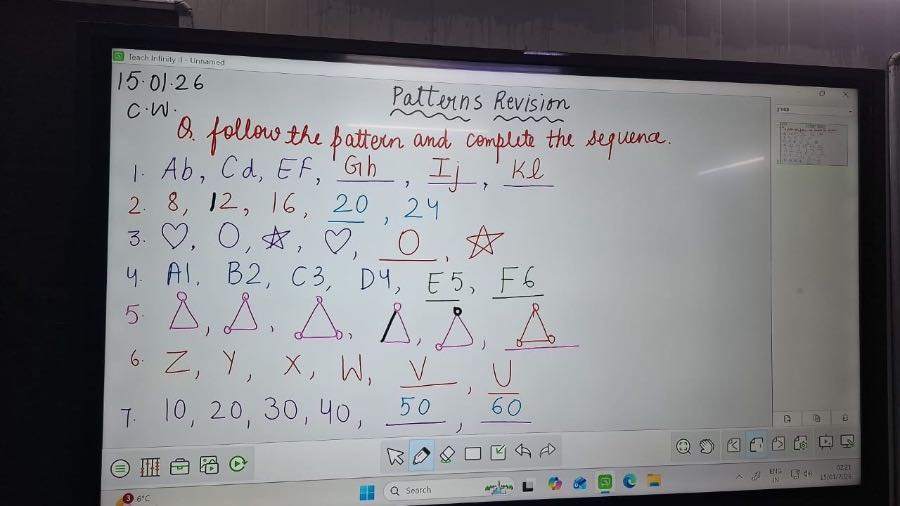 Teach Infinity II - Unnamed
15.01.26
Patterns Revision
C.W.
Q. follow the pattern and complete the sequence.
1. Ab, Cd, EF, Gh, Ij, Kl
2. 8, 12, 16, 20, 24
3.
4. A1, B2, C3, D4, E5, F6
5.
6. Z, Y, X, W, V, U
7. 10, 20, 30, 40, 50, 60
3 6°C
Search
ENG
IN
02:21
15/01/2026